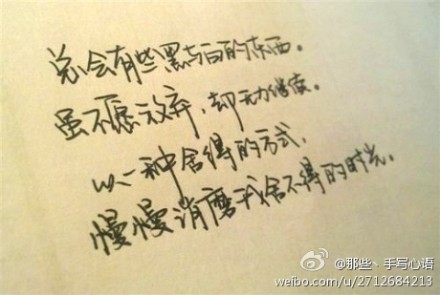 总会有些黑与白的东西。
虽不愿放弃，却无力偿还。
以一种舍得的方式，
慢慢消磨我舍不得的时光。
@那些丶手写心语
weibo.com/u/2712684213